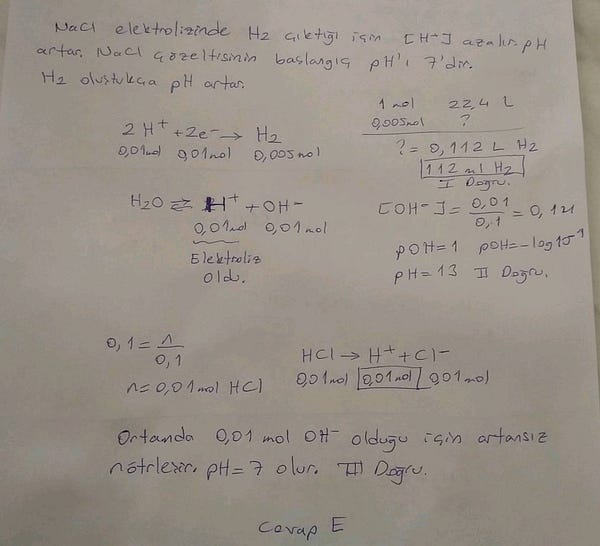 NaCl elektrolizinde H2 çıktığı için [H+] azalır. pH
artar. NaCl çözeltisinin başlangıç pH'ı 7'dir.
H2 oluştukça pH artar.
2H+ + 2e- → H2
0,01mol 0,01mol 0,005mol
1 mol 22,4 L
0,005mol ?
? = 0,112 L H2
112 ml H2
I Doğru.
H2O ⇌ H+ + OH-
0,01mol 0,01mol
Elektroliz
oldu.
[OH-] = 0,01/0,1 = 0,1M
pOH=1 pOH=-log10-1
pH=13 II Doğru.
0,1 = n/0,1
n=0,01mol HCl
HCl → H+ + Cl-
0,01mol 0,01mol 0,01mol
Ortamda 0,01 mol OH- olduğu için artansız
nötrleşir. pH=7 olur. III Doğru.
Cevap E